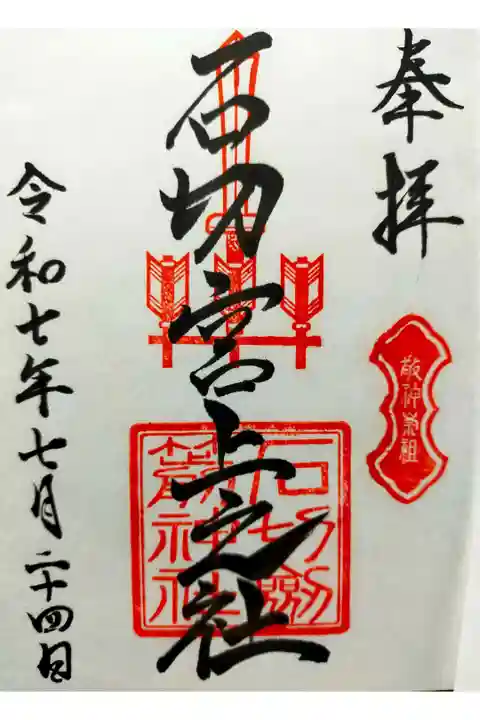 奉拝
敬神崇祖
石切宮上之社
石切劔箭神社
令和七年七月二十四日